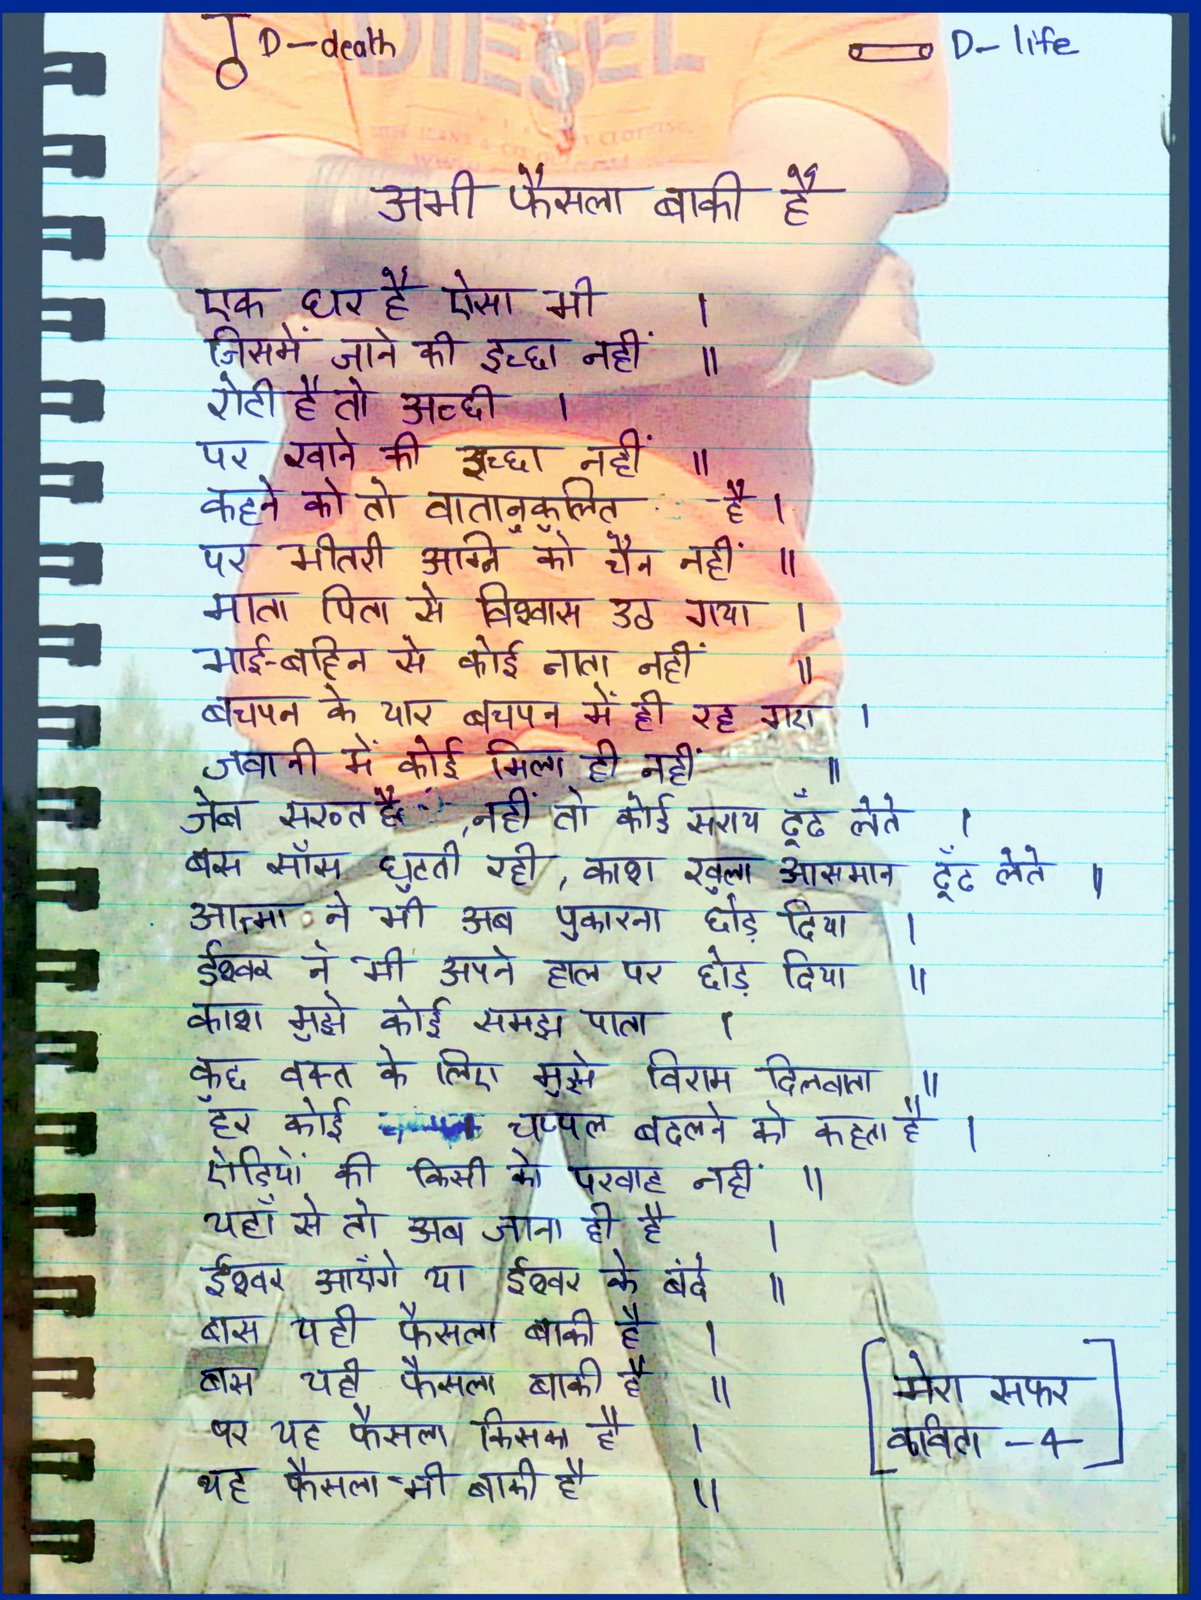 D-death
D- life
DIESEL
अभी फैसला बाकी है
एक घर है ऐसा भी ।
जिसमें जाने की इच्छा नहीं ॥
रोटी है तो अच्छी ।
पर खाने की इच्छा नहीं ॥
कहने को तो वातानुकुलित है ।
पर भीतरी अग्नि को चैन नहीं ॥
माता पिता से विश्वास उठ गया ।
भाई-बहिन से कोई नाता नहीं ॥
बचपन के यार बचपन में ही रह गया ।
जवानी में कोई मिला ही नहीं ॥
जेब सख्त है , नहीं तो कोई सराय ढूँढ लेते ।
बस साँस घुटती रही , काश खुला आसमान ढूँढ लेते ॥
आत्मा ने भी अब पुकारना छोड़ दिया ।
ईश्वर ने भी अपने हाल पर छोड़ दिया ॥
काश मुझे कोई समझ पाता ।
कुछ वक्त के लिए मुझे विराम दिलवाता ॥
हर कोई चप्पल बदलने को कहता है ।
ऐड़ियों की किसी को परवाह नहीं ॥
यहाँ से तो अब जाना ही है ।
ईश्वर आयेंगे या ईश्वर के बंदे ॥
बास यही फैसला बाकी है ।
बास यही फैसला बाकी है ॥
पर यह फैसला किसका है ।
यह फैसला भी बाकी है ॥
मेरा सफर
कविता -4-